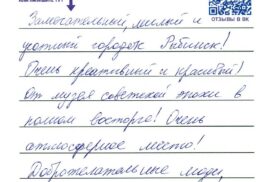 ОТЗЫВЫ В ВК
Замечательный, милый и
уютный городок Рыбинск!
Очень креативный и красивый!
От музея советской эпохи в
полном восторге! Очень
атмосферное место!
Доброжелательные люди,